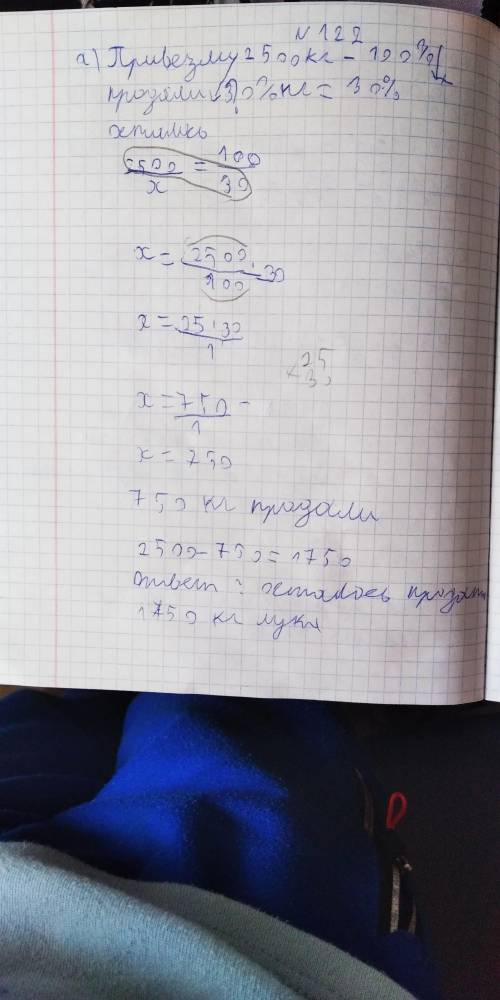 N 122
а) Привезли 2500 кг - 100%
продали 30% кг = 30%
2500 = 100
х 30
х = 2500 · 30
100
х = 25·30
1
25
30
х = 750
1
х = 750
750 кг продали
2500 - 750 = 1750
Ответ: осталось продать
1750 кг лука